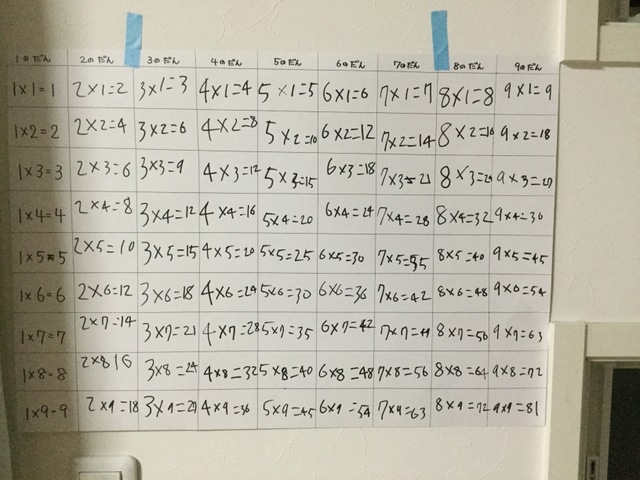 1のだん 2のだん 3のだん 4のだん 5のだん 6のだん 7のだん 8のだん 9のだん
1×1=1 2×1=2 3×1=3 4×1=4 5×1=5 6×1=6 7×1=7 8×1=8 9×1=9
1×2=2 2×2=4 3×2=6 4×2=8 5×2=10 6×2=12 7×2=14 8×2=16 9×2=18
1×3=3 2×3=6 3×3=9 4×3=12 5×3=15 6×3=18 7×3=21 8×3=24 9×3=27
1×4=4 2×4=8 3×4=12 4×4=16 5×4=20 6×4=24 7×4=28 8×4=32 9×4=36
1×5=5 2×5=10 3×5=15 4×5=20 5×5=25 6×5=30 7×5=35 8×5=40 9×5=45
1×6=6 2×6=12 3×6=18 4×6=24 5×6=30 6×6=36 7×6=42 8×6=48 9×6=54
1×7=7 2×7=14 3×7=21 4×7=28 5×7=35 6×7=42 7×7=49 8×7=56 9×7=63
1×8=8 2×816 3×8=24 4×8=32 5×8=40 6×8=48 7×8=56 8×8=64 9×8=72
1×9=9 2×9=18 3×9=27 4×9=36 5×9=45 6×9=54 7×9=63 8×9=72 9×9=81